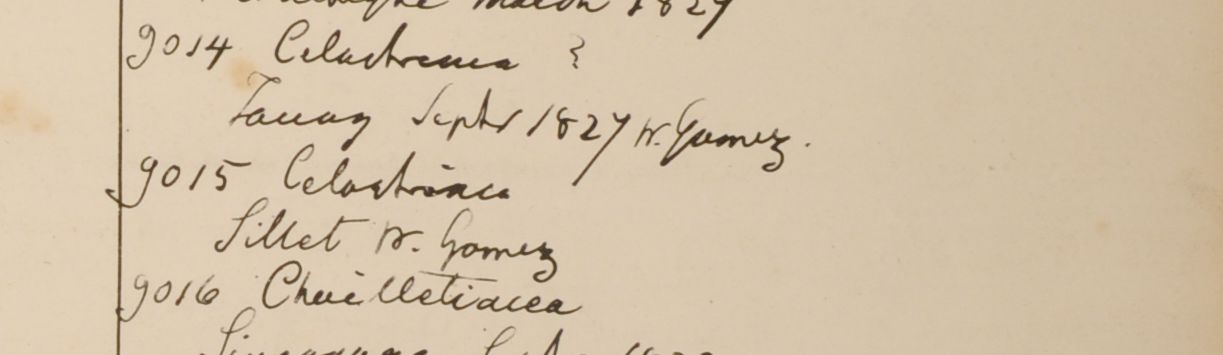 March 1827
9014 Celastrinea ?
Tavoy Septr 1827 W. Gomez.
9015 Celastrinea
Sillet W. Gomez
9016 Chailletiacea